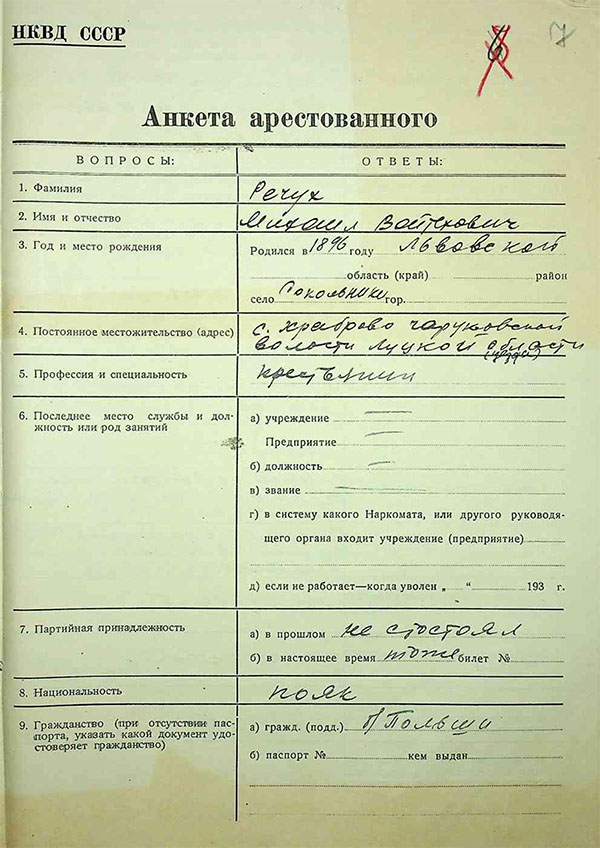 НКВД СССР
6
7
Анкета арестованного
ВОПРОСЫ: ОТВЕТЫ:
1. Фамилия Речух
2. Имя и отчество Михаил Войтехович
3. Год и место рождения Родился в 1896 году Львовской
область (край) район
село Сокольники гор.
4. Постоянное местожительство (адрес) с. Храброво Чаруковской
волости Луцкой области
(уезда)
5. Профессия и специальность крестьянин
6. Последнее место службы и дол- а) учреждение —
жность или род занятий Предприятие —
б) должность —
в) звание —
г) в систему какого Наркомата, или другого руководя-
щего органа входит учреждение (предприятие)
д) если не работает—когда уволен „ “ 193 г.
7. Партийная принадлежность а) в прошлом не состоял
б) в настоящее время тоже билет №
8. Национальность пояк
9. Гражданство (при отсутствии пас- а) гражд. (подд.) б/Польши
порта, указать какой документ удо- б) паспорт № кем выдан
стоверяет гражданство)